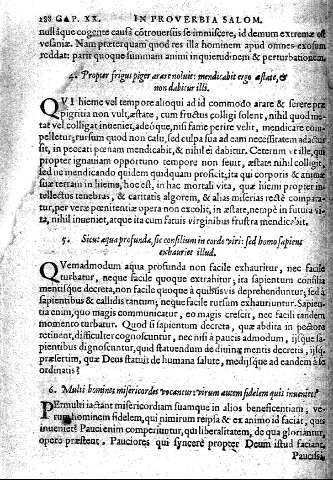 188 CAP. XX. IN PROVERBIA SALOM.
nullaque cogente causa cōtrouersiis se immiscere, id demum extremæ est
vesaniæ. Nam præterquam quod res illa hominem apud omnes exosum
reddat: parit quoque summam animi inquietudinem & perturbationem.
4. Propter frigus piger arare noluit: mendicabit ergo æstate, &
non dabitur illi.
QVI hieme vel tempore alioqui ad id commodo arare & serere præ
pigritia non vult, æstate, cum fructus colligi solent, nihil quod me-
tat vel colligat inueniet, adeóque, nisi fame perire velit, mendicare com-
pelletur: rursum quod non casu, sed culpa sua ad eam necessitatem adactus
sit, in peccati pœnam mendicabit, & nihil ei dabitur. Ceterum vt ille, qui
propter ignauiam opportuno tempore non seuit, æstate nihil colliget:
sed ne mendicando quidem quidquam proficit, ita qui corporis & animæ
suæ terram in hiems, hoc est, in hac mortali vita, quæ hiemi propter in-
tellectus tenebras, & caritatis algorem, & alias miserias rectè compara-
tur, per veræ pœnitentiæ opera non excolit, in æstate, nempè in futura vi-
ta, nihil inueniet, atque ita cum fatuis virginibus frustra mendicabit.
5. Sicut aqua profunda, sic consilium in corde viri: sed homo sapiens
exhauriet illud.
QVemadmodum aqua profunda non facile exhauritur, nec facile
turbatur, neque facile quoque extrahitur, ita sapientum consilia
mentisque decreta, non facile quoque à quibusuis deprehenduntur; sed à
sapientibus & callidis tantum; neque facile rursum exhauriuntur. Sapien-
tia enim, quo magis communicatur, eo magis crescit, nec facili tandem
momento turbatur. Quod si sapientum decreta, quæ abdita in pectore
retinent, difficulter cognoscuntur, nec nisi à paucis admodum, iisque sa-
pientibus dignoscantur, quid statuendum de diuinæ mentis decretis, iisq.
præsertim, quæ Deus statuit de humana salute, mediisque ad eandem à se
ordinatis?
6. Multi homines misericordes vocantur: virum autem fidelem quis inueniet?
PErmulti iactant misericordiam suamque in alios beneficentiam; ve-
rum hominem fidelem, qui nimirum reipsa & ex animo id faciat, quis
inueniet? Pauci enim comperiuntur, qui liberalitatem, de qua gloriantur,
opere præstent. Pauciores qui syncerè propter Deum istud faciant.
Paucissi-